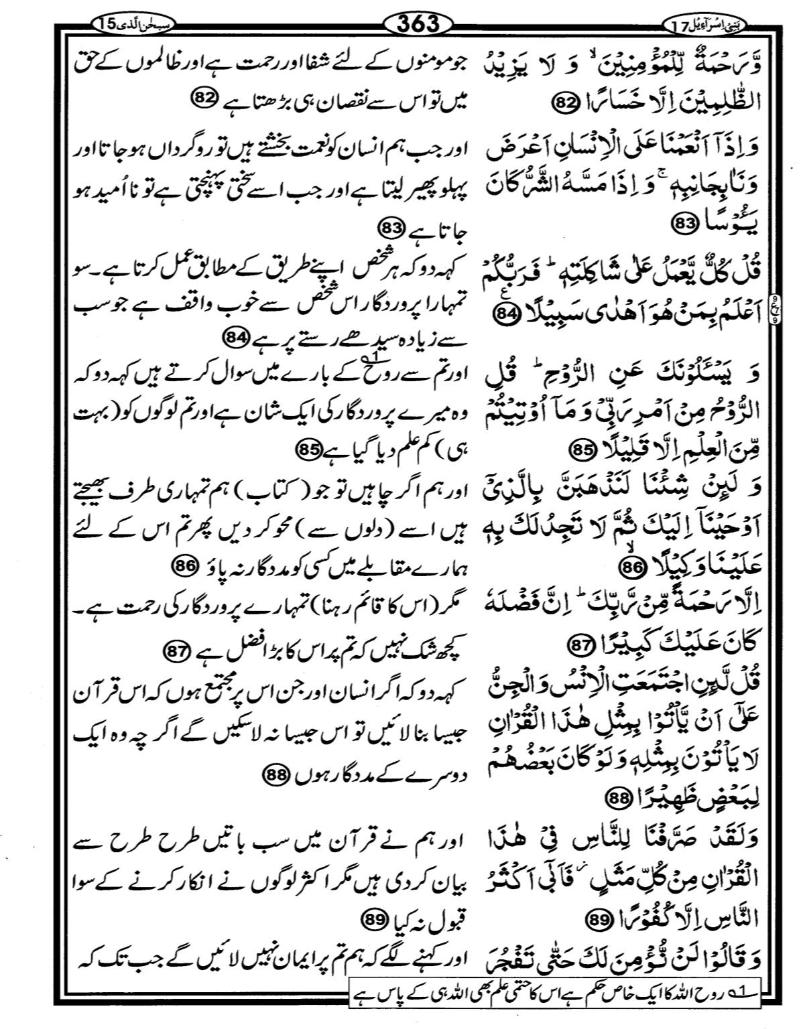 بَنِیۡۤ اِسۡرَآءِیۡل 17
363
سبحٰن الّذی 15
وَّرَحۡمَةٌ لِّلۡمُؤۡمِنِيۡنَ ۙ وَ لَا يَزِيۡدُ
الظّٰلِمِيۡنَ اِلَّا خَسَارًا 82
وَاِذَاۤ اَنۡعَمۡنَا عَلَى الۡاِنۡسَانِ اَعۡرَضَ
وَنَاٰ بِجَانِبِهٖ ۚ وَاِذَا مَسَّهُ الشَّرُّ كَانَ
يَـــُٔوۡسًا 83
قُلۡ كُلٌّ يَّعۡمَلُ عَلٰى شَاكِلَتِهٖ ؕ فَرَبُّكُمۡ
اَعۡلَمُ بِمَنۡ هُوَ اَهۡدٰى سَبِيۡلًا 84
وَ يَسۡـــَٔلُوۡنَكَ عَنِ الرُّوۡحِ ؕ قُلِ
الرُّوۡحُ مِنۡ اَمۡرِ رَبِّىۡ وَمَاۤ اُوۡتِيۡتُمۡ
مِّنَ الۡعِلۡمِ اِلَّا قَلِيۡلًا 85
وَ لَٮِٕنۡ شِئۡنَا لَنَذۡهَبَنَّ بِالَّذِىۡۤ
اَوۡحَيۡنَاۤ اِلَيۡكَ ثُمَّ لَا تَجِدُ لَكَ بِهٖ
عَلَيۡنَا وَكِيۡلًا ۙ 86
اِلَّا رَحۡمَةً مِّنۡ رَّبِّكَ ؕ اِنَّ فَضۡلَهٗ
كَانَ عَلَيۡكَ كَبِيۡرًا 87
قُلۡ لَّٮِٕنِ اجۡتَمَعَتِ الۡاِنۡسُ وَالۡجِنُّ
عَلٰٓى اَنۡ يَّاۡتُوۡا بِمِثۡلِ هٰذَا الۡقُرۡاٰنِ
لَا يَاۡتُوۡنَ بِمِثۡلِهٖ وَلَوۡ كَانَ بَعۡضُهُمۡ
لِبَعۡضٍ ظَهِيۡرًا 88
وَلَقَدۡ صَرَّفۡنَا لِلنَّاسِ فِىۡ هٰذَا
الۡقُرۡاٰنِ مِنۡ كُلِّ مَثَلٍ فَاَبٰٓى اَكۡثَرُ
النَّاسِ اِلَّا كُفُوۡرًا 89
وَقَالُوۡا لَنۡ نُّؤۡمِنَ لَكَ حَتّٰى تَفۡجُرَ
جو مومنوں کے لئے شفا اور رحمت ہے اور ظالموں کے حق
میں تو اس سے نقصان ہی بڑھتا ہے 82
اور جب ہم انسان کو نعمت بخشتے ہیں تو روگرداں ہو جاتا اور
پہلو پھیر لیتا ہے اور جب اسے سختی پہنچتی ہے تو نا اُمید ہو
جاتا ہے 83
کہہ دو کہ ہر شخص اپنے طریق کے مطابق عمل کرتا ہے۔ سو
تمہارا پروردگار اس شخص سے خوب واقف ہے جو سب
سے زیادہ سیدھے رستے پر ہے 84
اور تم سے روح 1؎ کے بارے میں سوال کرتے ہیں کہہ دو کہ
وہ میرے پروردگار کی ایک شان ہے اور تم لوگوں کو (بہت
ہی) کم علم دیا گیا ہے 85
اور ہم اگر چاہیں تو جو (کتاب) ہم تمہاری طرف بھیجتے
ہیں اسے (دلوں سے) محو کر دیں پھر تم اس کے لئے
ہمارے مقابلے میں کسی کو مددگار نہ پاؤ 86
مگر (اس کا قائم رہنا) تمہارے پروردگار کی رحمت ہے۔
کچھ شک نہیں کہ تم پر اس کا بڑا فضل ہے 87
کہہ دو کہ اگر انسان اور جن اس پر مجتمع ہوں کہ اس قرآن
جیسا بنا لائیں تو اس جیسا نہ لا سکیں گے اگر چہ وہ ایک
دوسرے کے مددگار ہوں 88
اور ہم نے قرآن میں سب باتیں طرح طرح سے
بیان کر دی ہیں مگر اکثر لوگوں نے انکار کرنے کے سوا
قبول نہ کیا 89
اور کہنے لگے کہ ہم تم پر ایمان نہیں لائیں گے جب تک کہ
1؎ روح اللہ کا ایک خاص حکم ہے اس کا حتمی علم بھی اللہ ہی کے پاس ہے